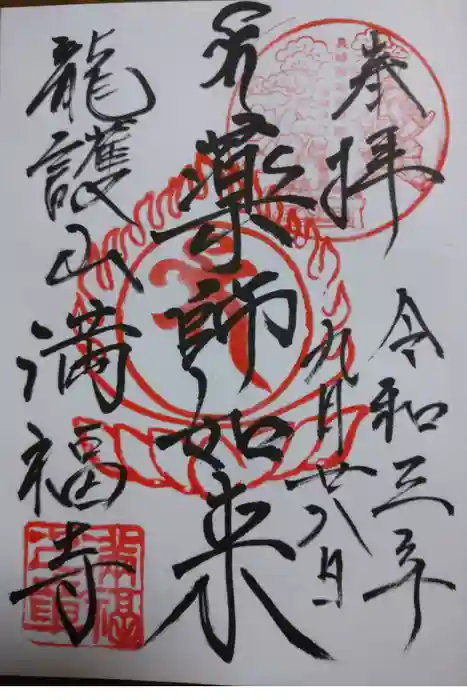 奉拝
令和三年
九月廿八日
薬師如来
龍護山満福寺